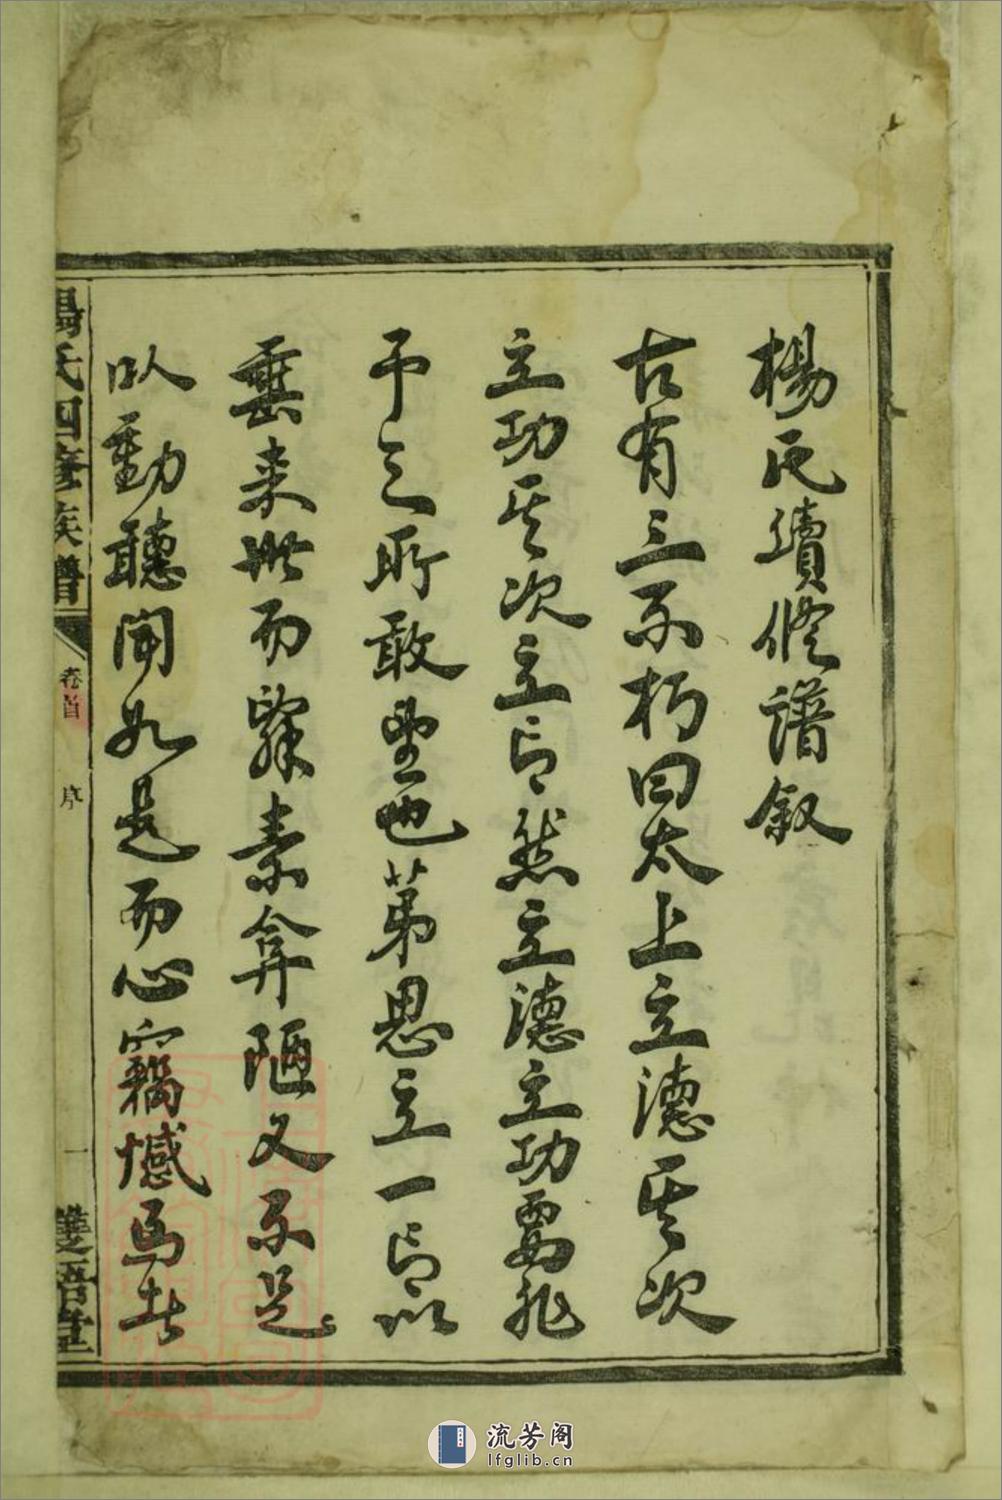 楊氏續修譜叙
古有三不朽曰太上立德其次
立功其次立言然立德立功要非
予之所敢望也第思立一言以
垂来世而學素弇陋又不足
以動聽聞如是而心竊憾焉者
楊氏四修族譜
卷首
序
一
雙梧堂
流芳阁
lfglib.cn